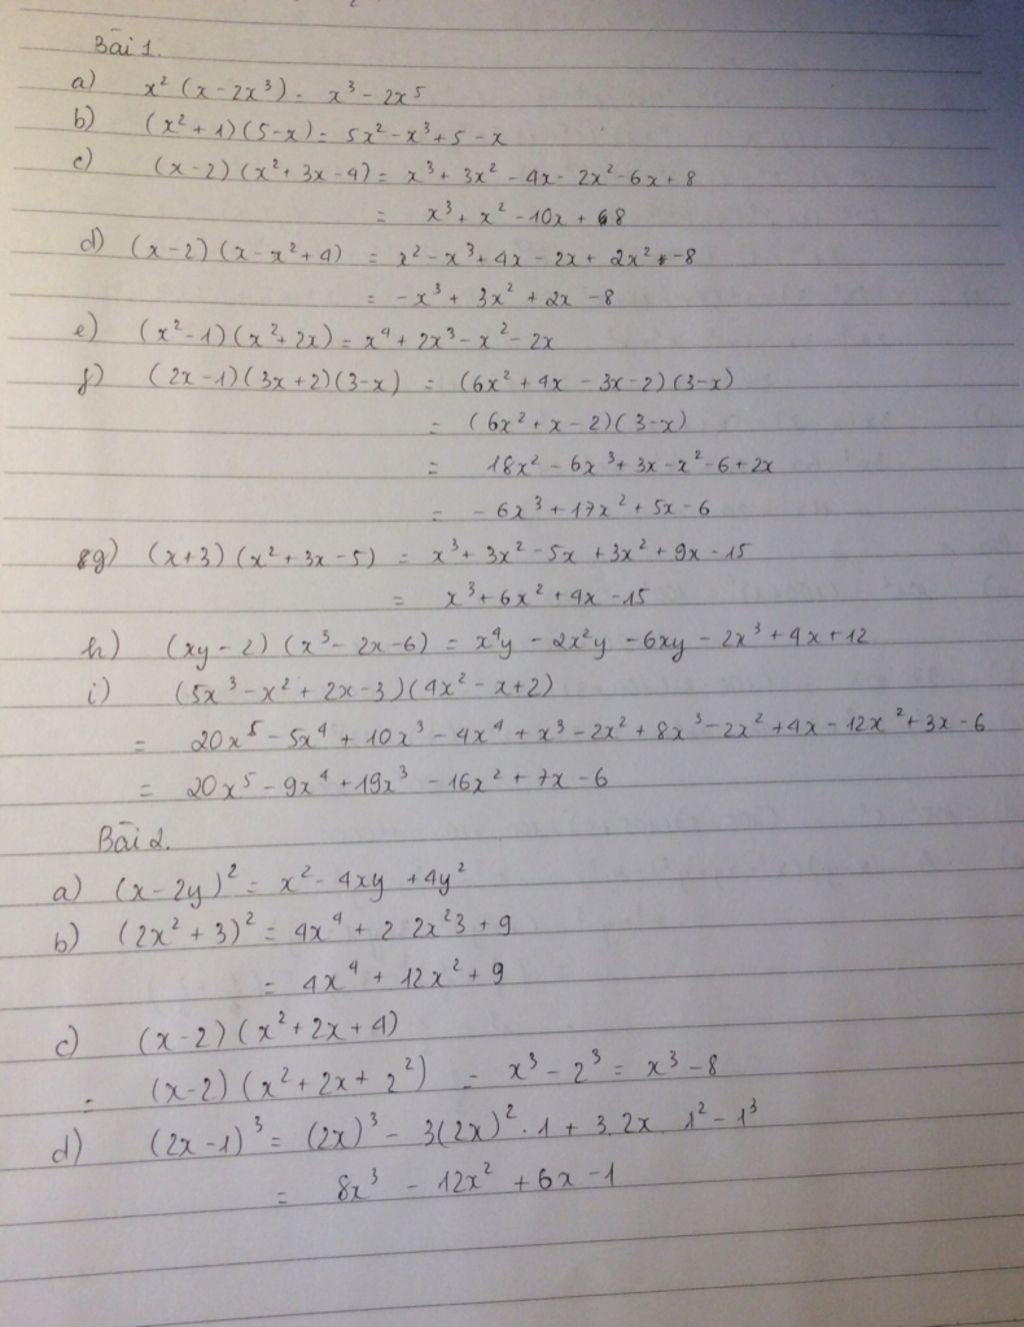 Bài 1.
a) x² (x - 2x³) = x³ - 2x⁵
b) (x² + 1)(5-x) = 5x² - x³ + 5 - x
c) (x-2)(x² + 3x - 4) = x³ + 3x² - 4x - 2x² - 6x + 8
= x³ + x² - 10x + 8
d) (x-2)(x - x² + 4) = x² - x³ + 4x - 2x + 2x² - 8
= -x³ + 3x² + 2x - 8
e) (x² - 1)(x² + 2x) = x⁴ + 2x³ - x² - 2x
f) (2x-1)(3x+2)(3-x) = (6x² + 4x - 3x - 2)(3-x)
= (6x² + x - 2)(3-x)
= 18x² - 6x³ + 3x - x² - 6 + 2x
= - 6x³ + 17x² + 5x - 6
g) (x+3)(x² + 3x - 5) = x³ + 3x² - 5x + 3x² + 9x - 15
= x³ + 6x² + 4x - 15
h) (xy - 2)(x³ - 2x - 6) = x⁴y - 2x²y - 6xy - 2x³ + 4x + 12
i) (5x³ - x² + 2x - 3)(4x² - x + 2)
= 20x⁵ - 5x⁴ + 10x³ - 4x⁴ + x³ - 2x² + 8x³ - 2x² + 4x - 12x² + 3x - 6
= 20x⁵ - 9x⁴ + 19x³ - 16x² + 7x - 6
Bài 2.
a) (x - 2y)² = x² - 4xy + 4y²
b) (2x² + 3)² = 4x⁴ + 2 2x²3 + 9
= 4x⁴ + 12x² + 9
c) (x-2)(x² + 2x + 4)
= (x-2)(x² + 2x + 2²) = x³ - 2³ = x³ - 8
d) (2x - 1)³ = (2x)³ - 3(2x)² . 1 + 3. 2x 1² - 1³
= 8x³ - 12x² + 6x - 1